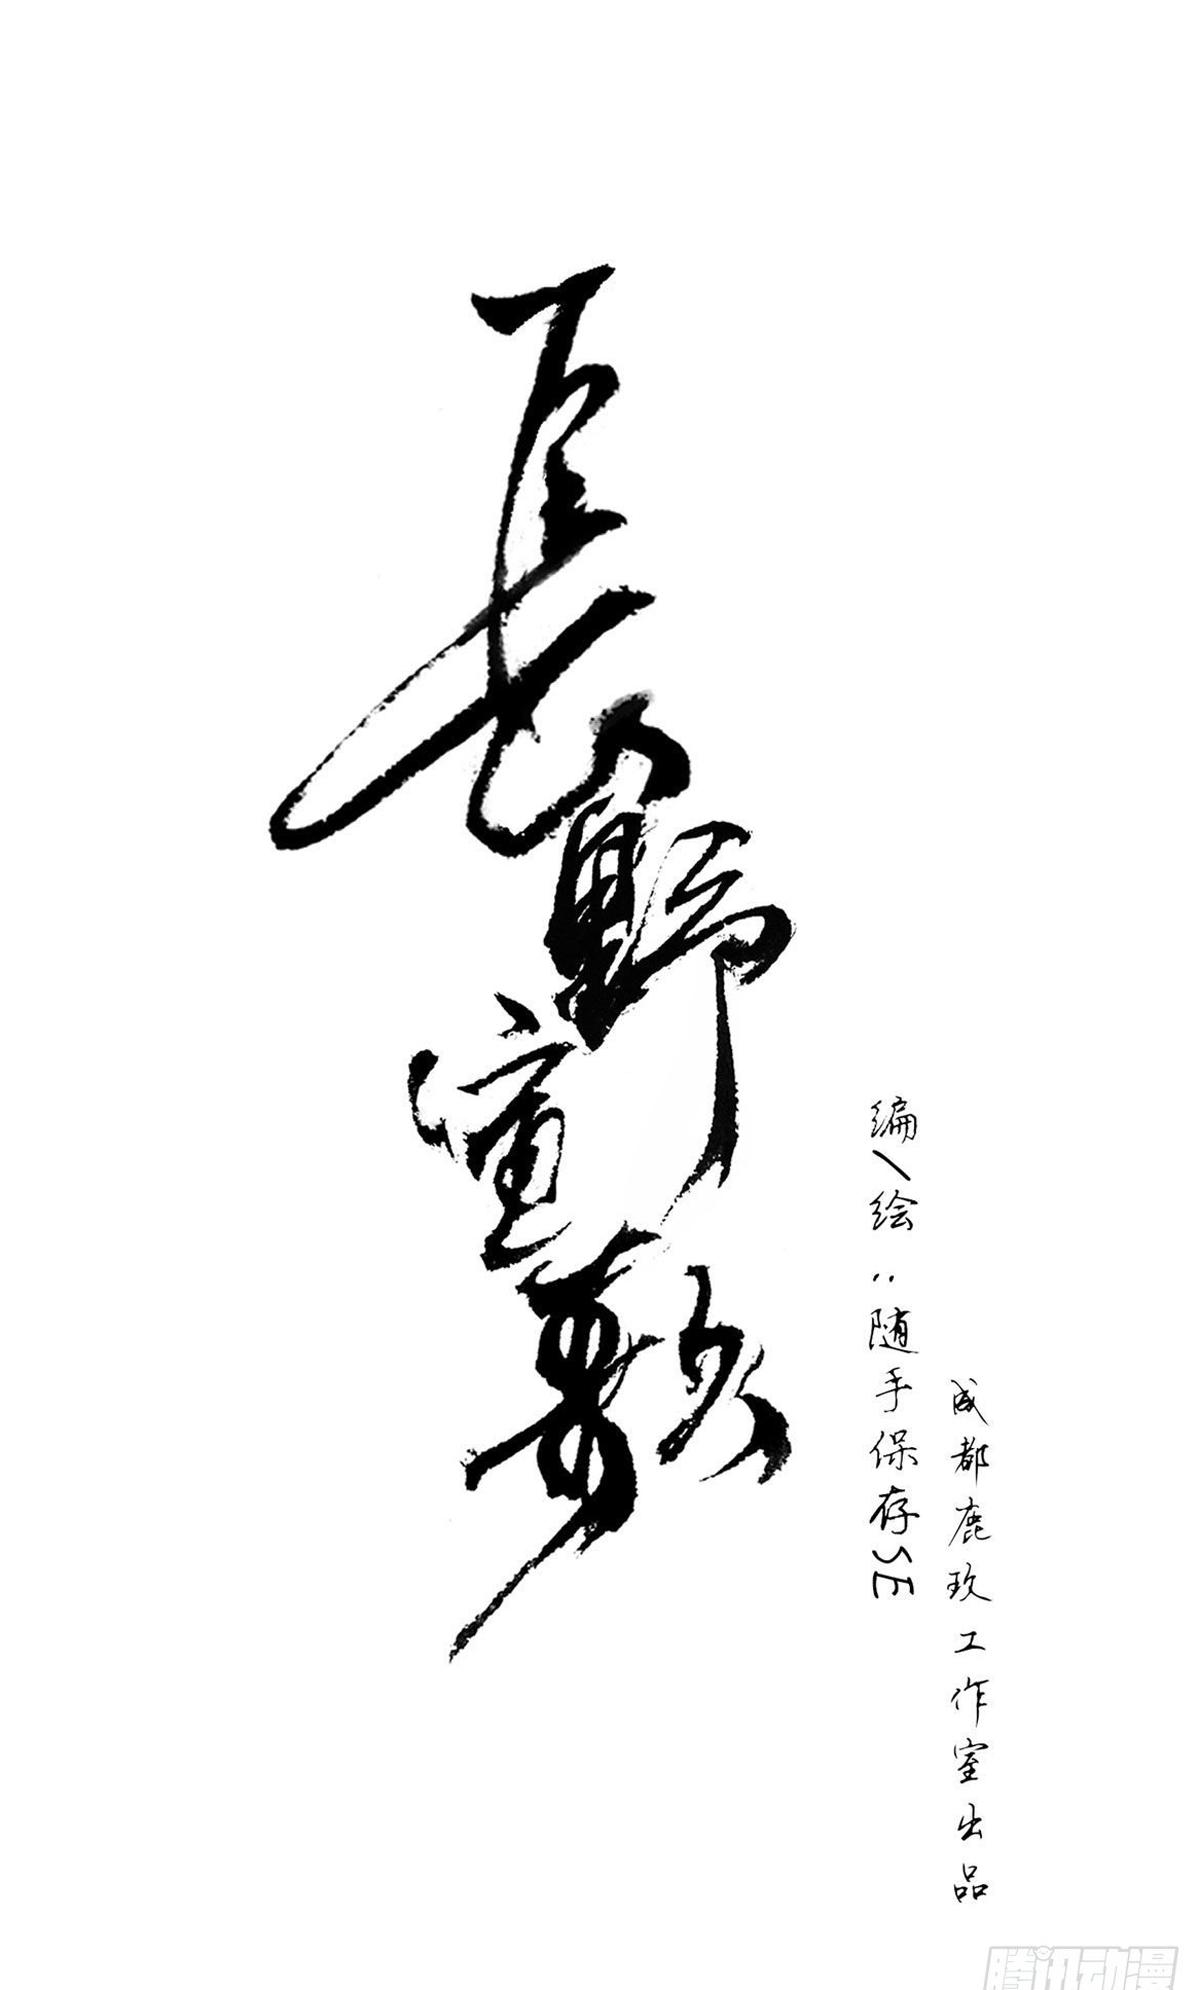 長野宣教
编/绘:随手保存SE
成都鹿玖工作室出品
腾讯动漫